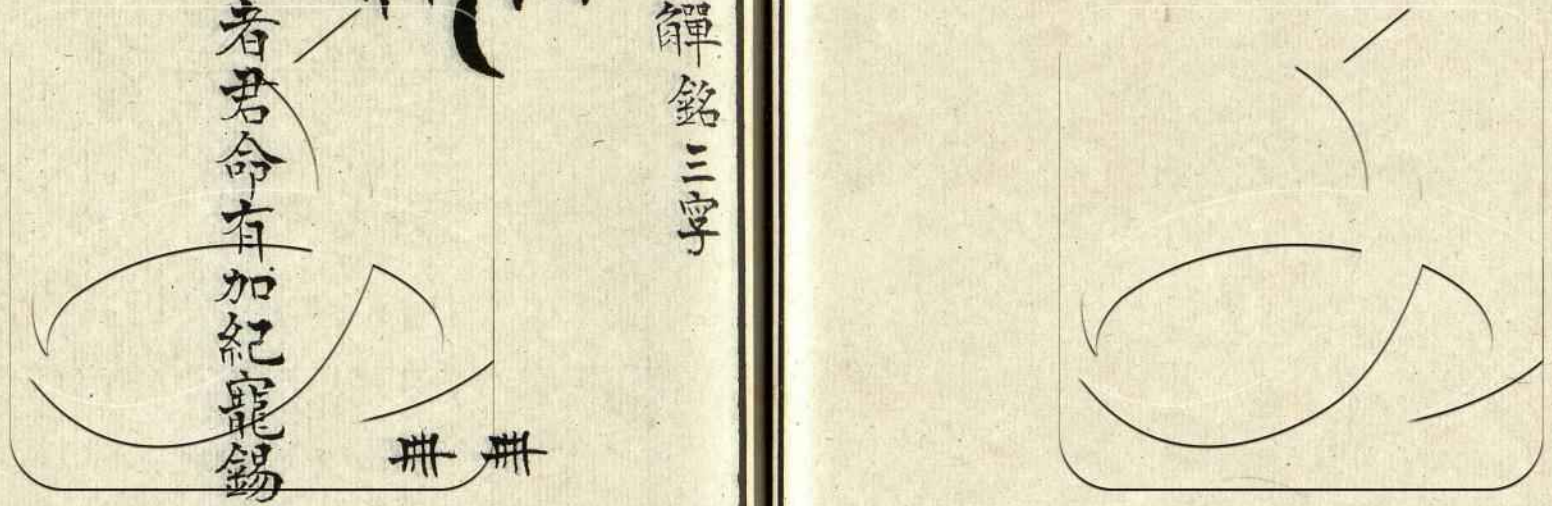 觶銘三字
者君命有加紀寵錫